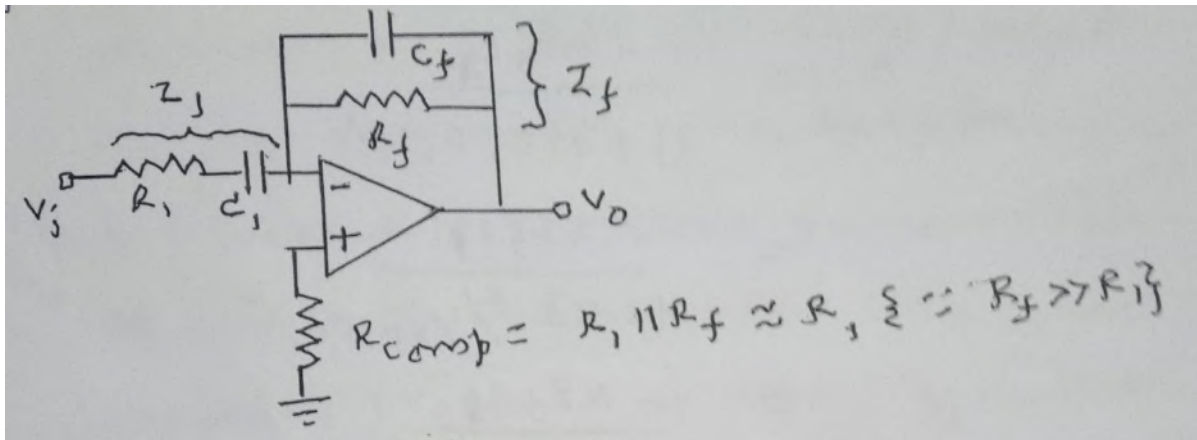 C_f
} Z_f
Z_1
R_f
V_i R_1 C_1 - V_0
+
R_comp = R_1 || R_f ≈ R_1 {∵ R_f >> R_1}